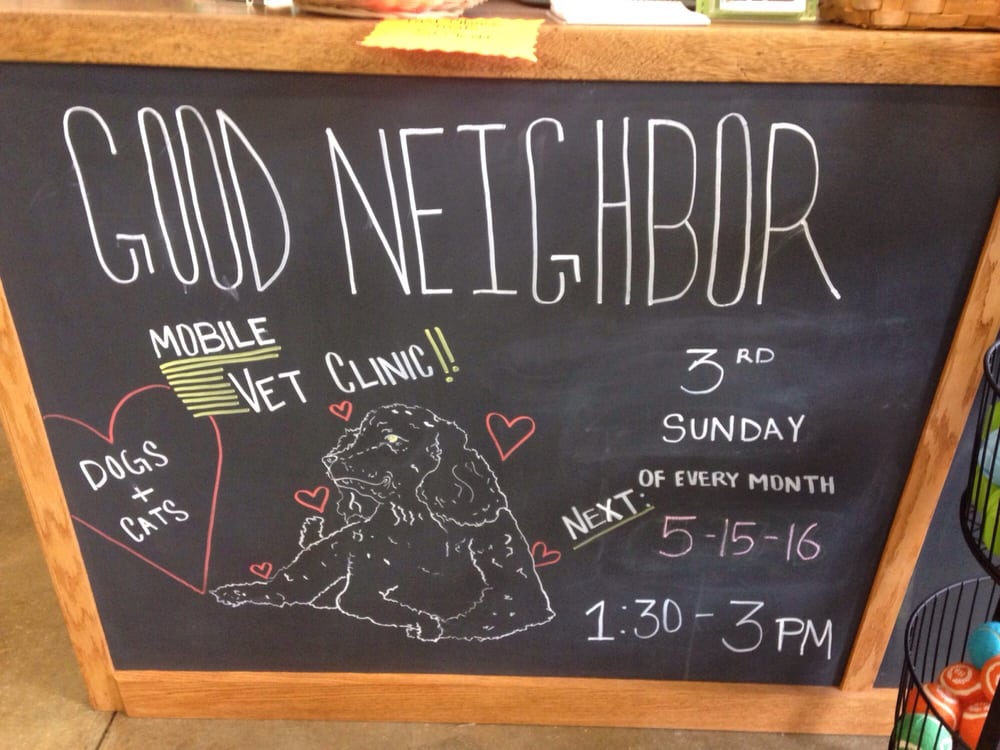 GOOD NEIGHBOR
MOBILE
VET CLINIC!!
DOGS
+
CATS
3RD
SUNDAY
OF EVERY MONTH
NEXT:
5-15-16
1:30-3 PM